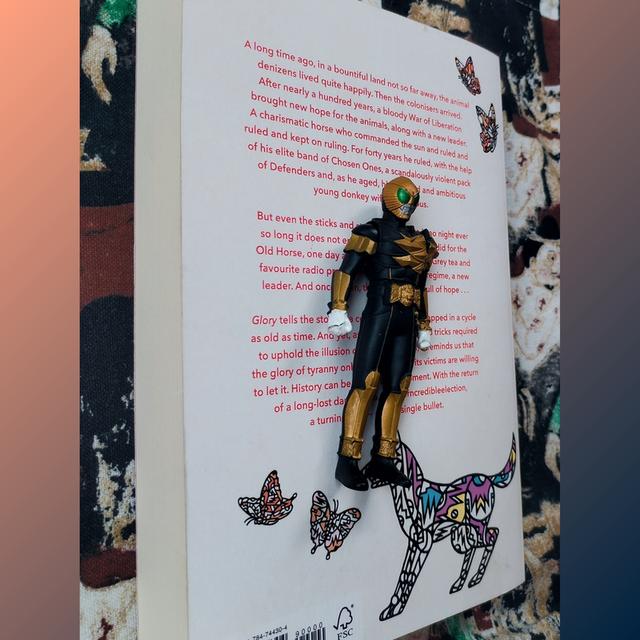 A long time ago, in a bountiful land not so far away, the animal
denizens lived quite happily. Then the colonisers arrived.
After nearly a hundred years, a bloody War of Liberation
brought new hope for the animals, along with a new leader.
A charismatic horse who commanded the sun and ruled and
ruled and kept on ruling. For forty years he ruled, with the help
of his elite band of Chosen Ones, a scandalously violent pack
of Defenders and, as he aged, his and ambitious
young donkey
But even the sticks and no night ever
so long it does not did for the
Old Horse, one day Grey tea and
favourite radio regime, a new
leader. And once full of hope . . .
Glory tells the trapped in a cycle
as old as time. And yet, tricks required
to uphold the illusion reminds us that
the glory of tyranny only its victims are willing
to let it. History can be With the return
of a long-lost incredibleelection,
a single bullet.
784-74430-4
90000
FSC